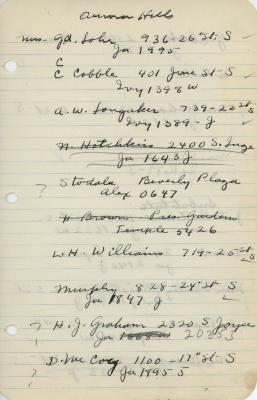 Aurora Hills
Mrs. Ed. Lohr 936-26th St. S ✓
Ja 1995
C
C Cobble 401 June St-S ✓
Ivy 1398 W
A. W. Longaker 739-22 St S
Ivy 1389-J ✓
A. Hotchkiss 2400 S. Inge
Ja 1643 J
? Stodala Beverly Plaza
Alex 0647
H Brown Pres. Gardens
Temple 5426
W. H. Williams 719-25th St S
Murphy 828-24th St S
Ja 1847-J ✓
? H. J. Graham 2320 S Joyce
? Ja 2035 S
D. McCoy 1100-17th St S
? Ja 1895 S